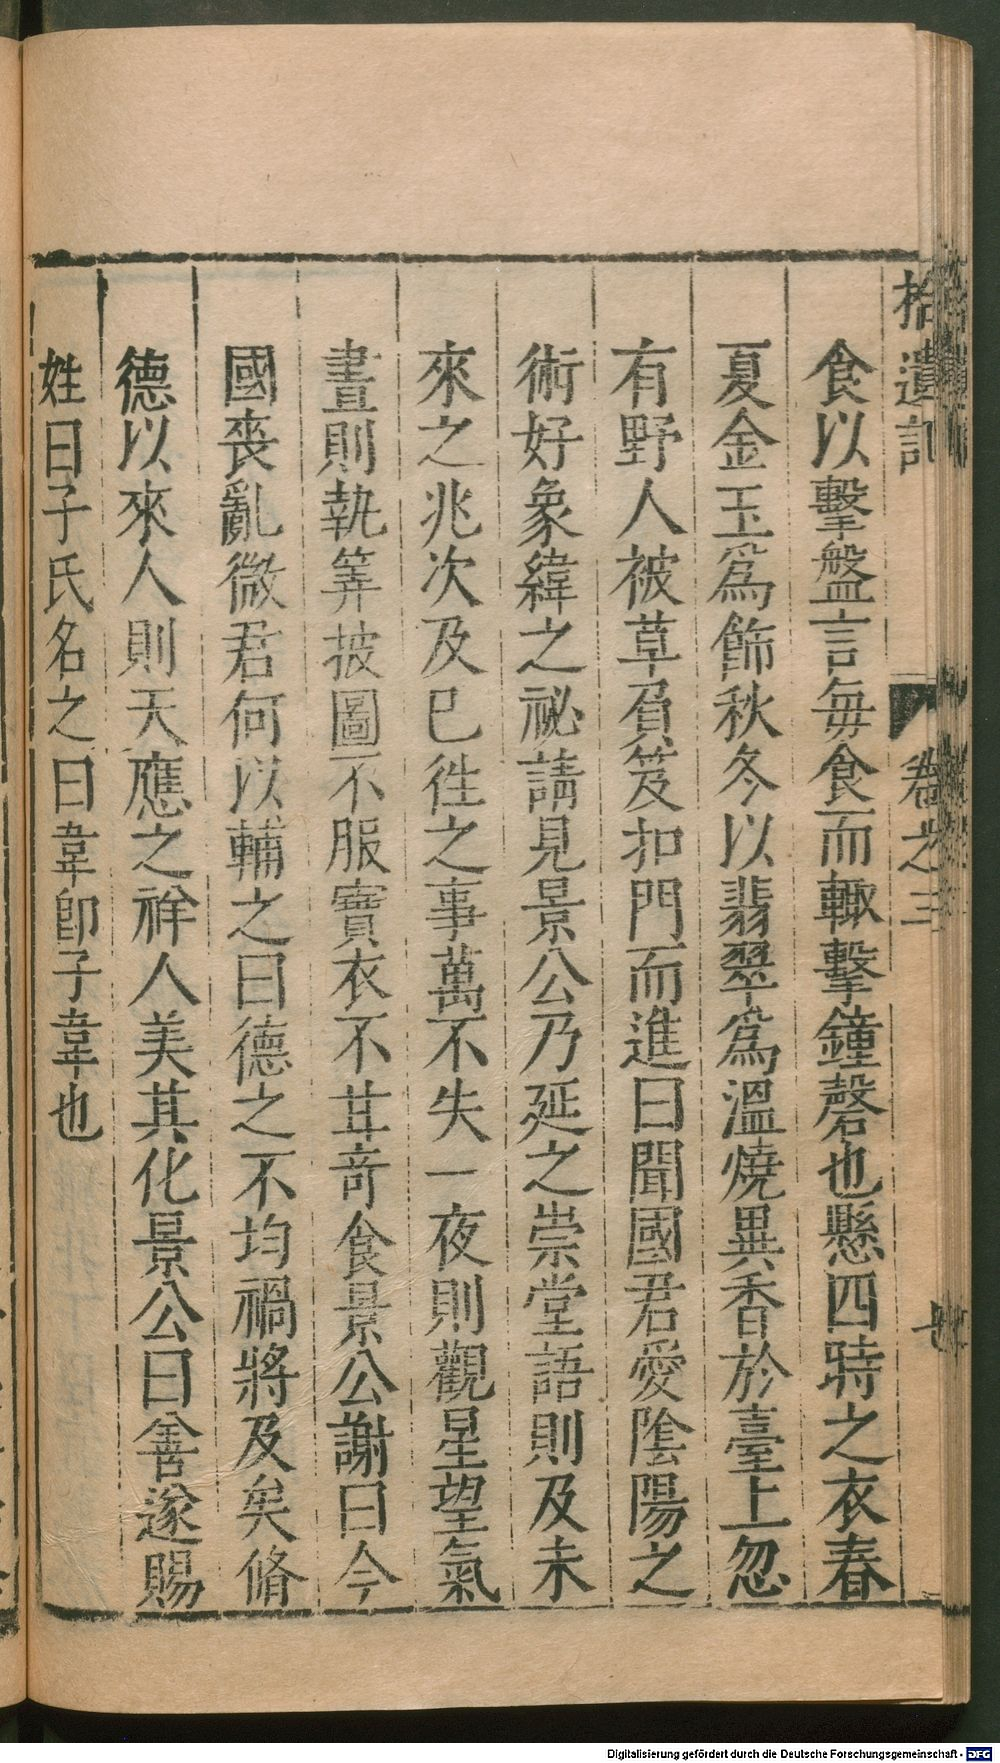 拾遺記 卷之三
食以擊盤言毎食而輙擊鐘磬也懸四時之衣春
夏金玉爲飾秋冬以翡翠爲溫燒異香於臺上忽
有野人被草負笈扣門而進曰聞國君愛陰陽之
術好象緯之祕請見景公乃延之崇堂語則及未
來之兆次及已徃之事萬不失一夜則觀星望氣
晝則執筭披圖不服寳衣不甘奇食景公謝曰今
國丧亂微君何以輔之曰德之不均禍將及矣脩
德以來人則天應之祥人美其化景公曰善遂賜
姓曰子氏名之曰韋卽子韋也
Digitalisierung gefördert durch die Deutsche Forschungsgemeinschaft - DFG